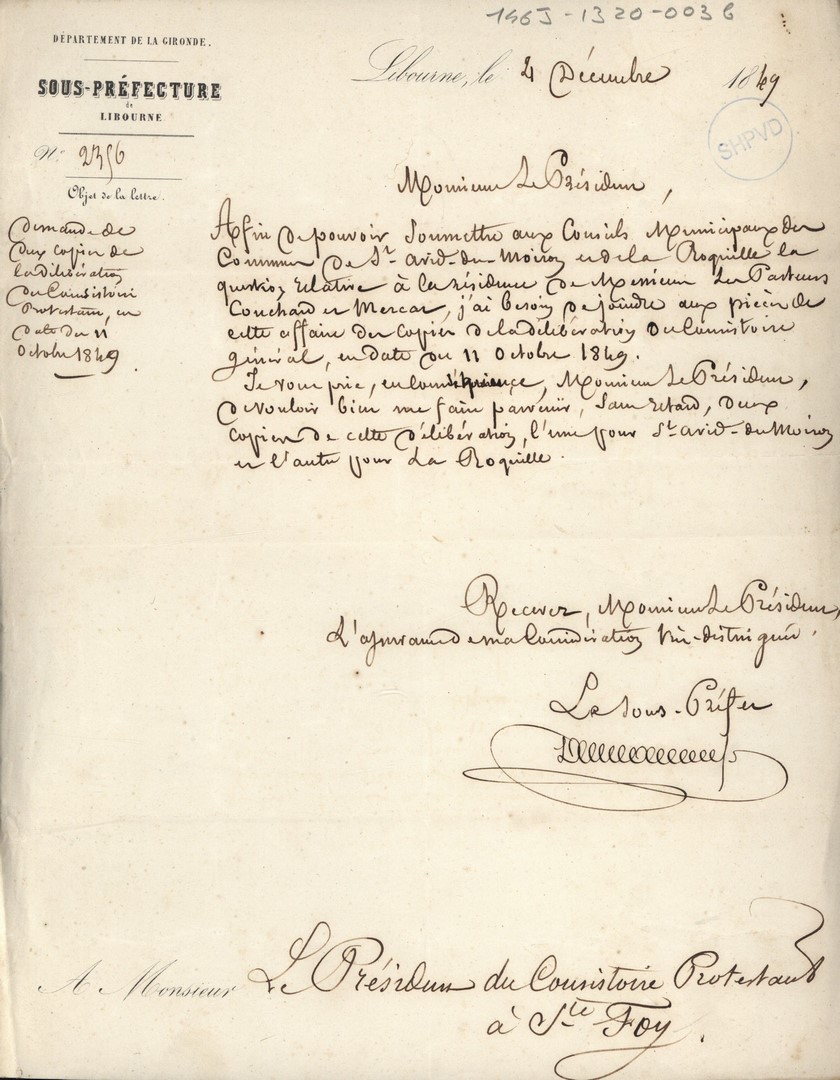 146J-1320-003 6
DÉPARTEMENT DE LA GIRONDE.
SOUS-PRÉFECTURE
de
LIBOURNE
N° 2356
Objet de la lettre.
Demande de
deux copies de
la délibération
du Consistoire
Protestant, en
date du 11
Octobre 1849.
Libourne, le 4 Décembre 1849
SHPVD
Monsieur Le Président,
Afin de pouvoir soumettre aux Conseils Municipaux des
Communes de St. avid-du-Moiron et de la Roquille la
question relative à la résidence de Messieurs Les Pasteurs
Couchard et Mercat, j'ai besoin de joindre aux pièces de
cette affaire des copies de la délibération du Consistoire
général, en date du 11 Octobre 1849.
Je vous prie, en conséquence, Monsieur Le Président,
de vouloir bien me faire parvenir, sans retard, deux
copies de cette délibération, l'une pour St. avid-du-Moiron
et l'autre pour La Roquille.
Recevez, Monsieur Le Président,
L'assurance de ma Considération très-distinguée.
Le Sous-Préfet
A Monsieur Le Président du Consistoire Protestant
à Ste Foy.